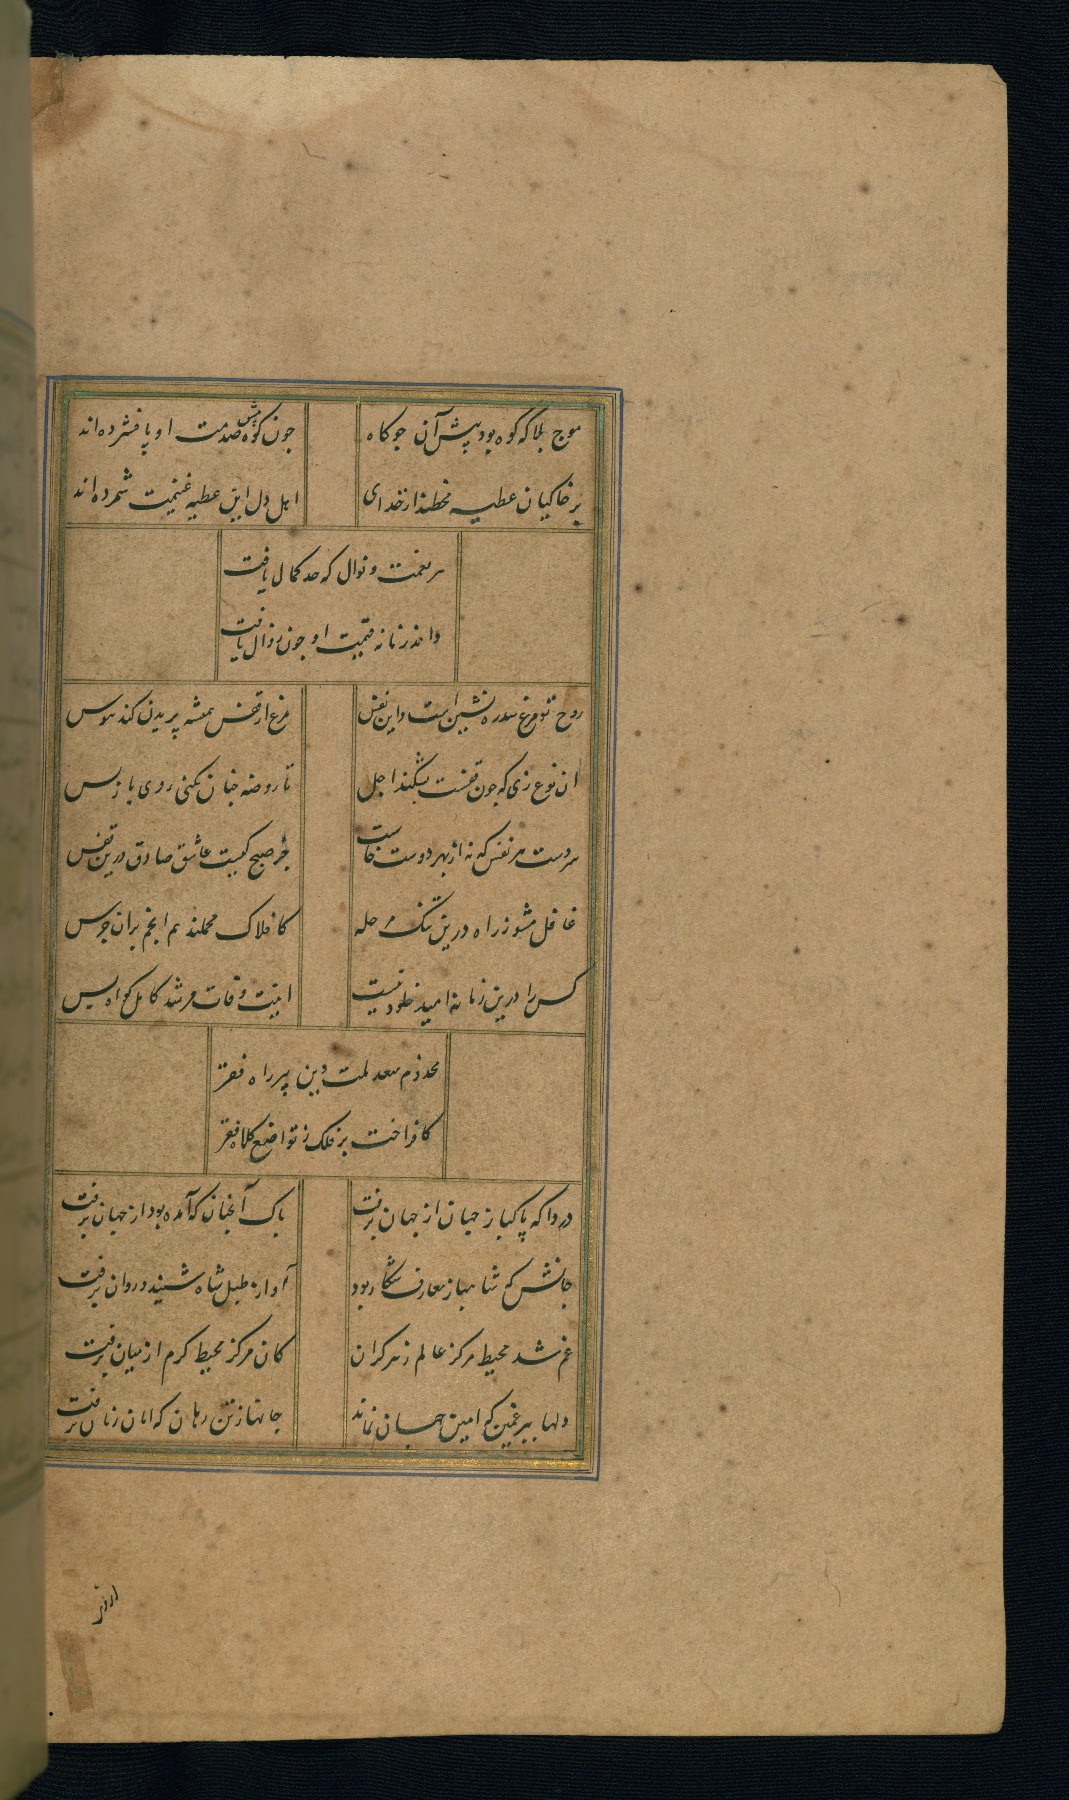 موج بلا که کوه بود پیش آن جو کاه
جون کوه پیش صدمت او پا فشرده‌اند
بر خاکیان عطیه محظند از خدای
اهل دل این عطیه غنیمت شمرده‌اند
هر نعمت و نوال که حد کمال یافت
داند زمانه قیمت او جون زوال یافت
روح تو مرغ سدره نشین است و این قفس
مرغ از قفس همیشه پریدن کند هوس
ان نوع زی که جون قفست بشکند اجل
تا روضه جنان نکنی روی باز پس
سردست هر نفس که نه از بهر دوست خاست
جز صبح کیست عاشق صادق درین قفس
غافل مشو ز راه درین تنک مرحله
کافلاک محملند هم انجم بران جرس
کس را درین زمانه امید خلود نیست
اینت وفات مرشد کامل کواه بس
مخدوم سعد ملت و دین پیر راه فقر
کافراخت بر فلک ز تواضع کلاه فقر
دردا که پاکباز جهان از جهان برفت
پاک آنجنان که آمده بود از جهان برفت
جانش که شاهباز معارف شکار بود
آواز طبل شاه شنید و روان برفت
غم شد محیط مرکز عالم ز هر کران
کان مرکز محیط کرم از میان برفت
دلها ببر غمین که امین جهان نماند
جانها ز تن رهان که امان زمان برفت